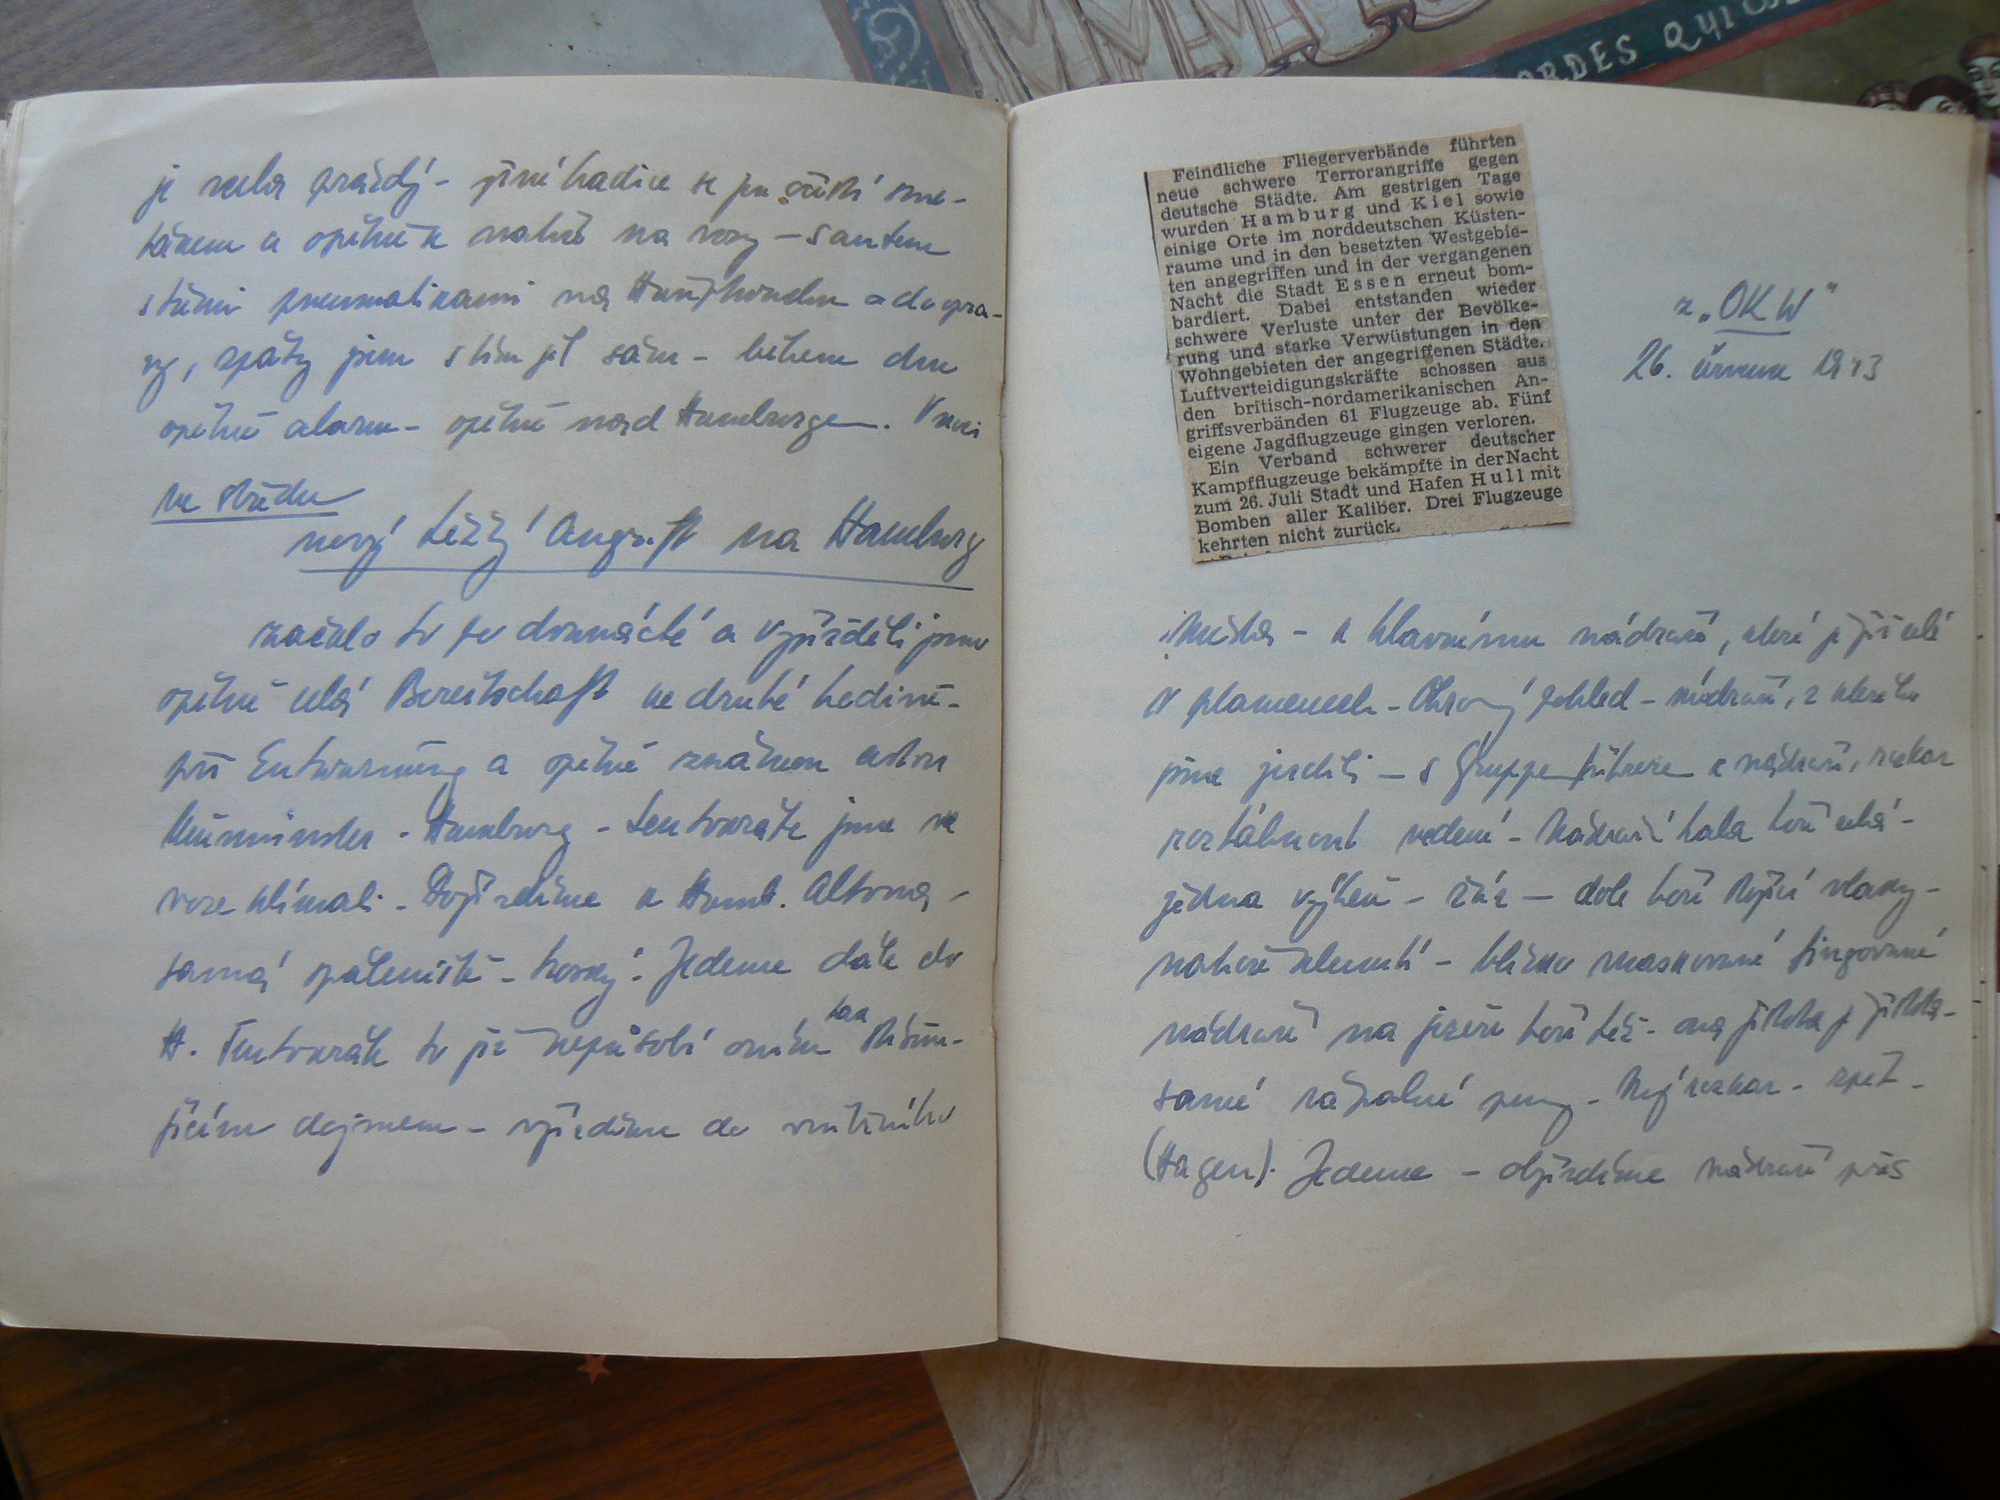 ORDES QUI
je zcela prázdý - jiné hadice se jen očistí sme-
tákem a opětně naloží na vozy - s autem
s pneumatikami na a do opra-
vy, zpátky jsem s tím jel sám - během dne
opětně alarm - opětně nad Hamburgem. V noci
na středu
nový těžký Angriff na Hamburg
začalo to po dvanácté a vyjížděli jsme
opětně celá Bereitschaft ve druhé hodině -
při Entwarnung a opětně známou
- Hamburg - tentokráte jsme ve
voze klímali - Dojíždíme k Hamb. Altona -
samá spáleniště - trosky. Jedeme dále do
H. Tentokráte to již nepůsobí oním tak
dojmem - vjíždíme do vnitřního
Feindliche Fliegerverbände führten
neue schwere Terrorangriffe gegen
deutsche Städte. Am gestrigen Tage
wurden Hamburg und Kiel sowie
einige Orte im norddeutschen Küsten-
raume und in den besetzten Westgebie-
ten angegriffen und in der vergangenen
Nacht die Stadt Essen erneut bom-
bardiert. Dabei entstanden wieder
schwere Verluste unter der Bevölke-
rung und starke Verwüstungen in den
Wohngebieten der angegriffenen Städte.
Luftverteidigungskräfte schossen aus
den britisch-nordamerikanischen An-
griffsverbänden 61 Flugzeuge ab. Fünf
eigene Jagdflugzeuge gingen verloren.
Ein Verband schwerer deutscher
Kampfflugzeuge bekämpfte in der Nacht
zum 26. Juli Stadt und Hafen Hull mit
Bomben aller Kaliber. Drei Flugzeuge
kehrten nicht zurück.
z „OKW"
26. 1943
města - k hlavnímu nádraží, které je již celé
v plamenech - Ohromný pohled - nádraží, z kterého
jsme jezdili - s Gruppenführerem k nádraží, rozkaz
roztáhnout vedení - Nádražní hala hoří celá -
jedna výheň - žár - dole hoří stojící vlaky -
nahoře klenutí - blízko maskované fingované
nádraží na jezeře hoří též - jiskra -
samé zápalné pumy - Nový rozkaz - zpět -
(Hagen). Jedeme - objíždíme nádraží přes